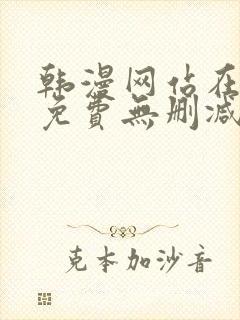 韩漫网站在
免費無删减
克本加沙音